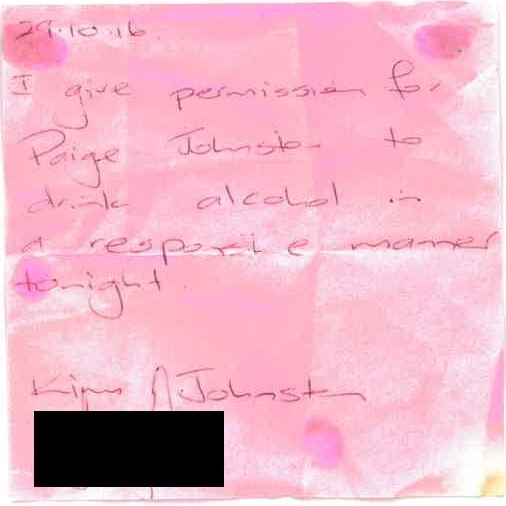 29.10.16
I give permission for
Paige Johnston to
drink alcohol in
a responsible manner
tonight.
Kim Johnston